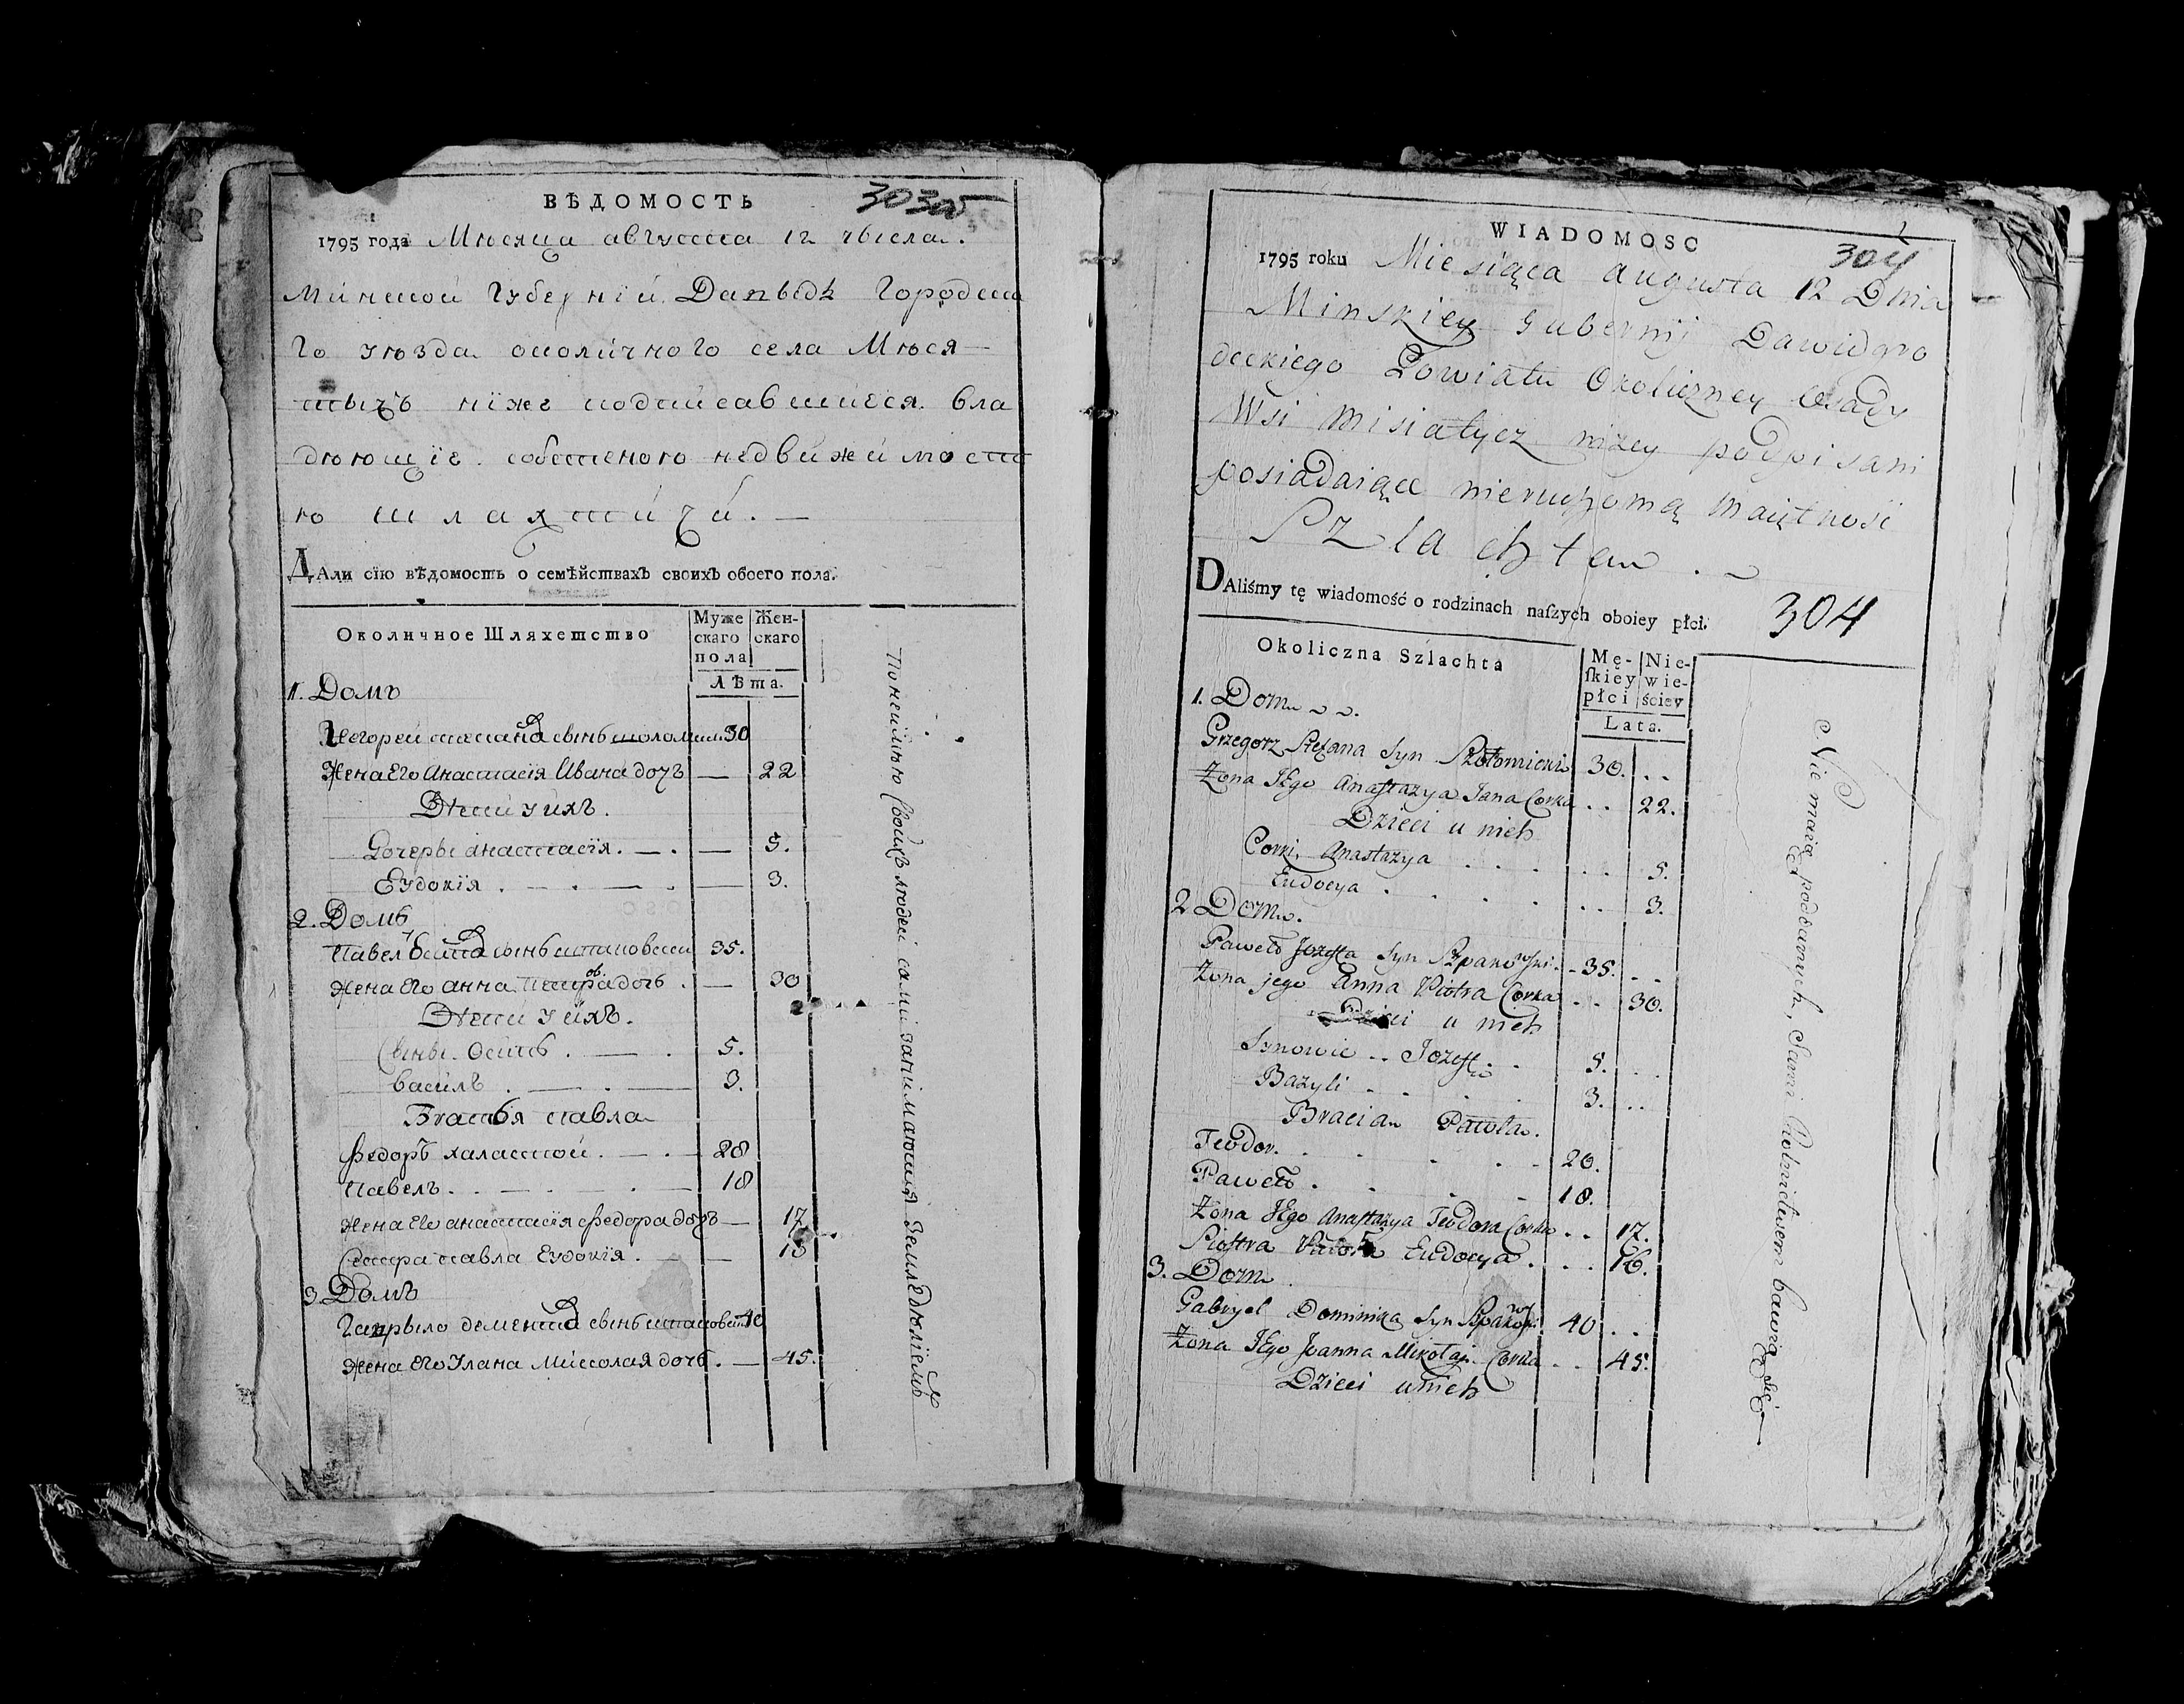 ВѢДОМОСТЬ
1795 года Мѣсяца августа 12 числа.
Минской Губернїи Давыдъ Городсца
го уѣзда околичного села Мѣся
тычъ нїже подписавшиеся вла
дѣющїе собственою недвижимостї
ю шляхтичи.
ДАли сїю вѣдомость о семѣйствахъ своихъ обоего пола.
Околичное Шляхетство
Муже скаго пола
Жен- скаго
Лѣта.
1. Домъ
сынъ 30
Жена Его Анастасїя Ивана дочъ — 22
Дѣти у ихъ.
Дочеры анастасїя. — . — 5.
Еудокїя . — . — . — 3.
2. Домъ
Павел Осипа сынъ 35.
Жена Его анна Петрова дочъ . — 30
Дѣти у ихъ.
Сыны. Осипъ . — . 5.
Василъ . — . — 3.
Братья павла
Федоръ халастой . — . — 28
Павелъ . . — . — . — 18
Жена Его анастасїя федора дочъ — 17
Сестра павла Еудокїя . — —
3. Домъ
Гаврыло дементїа сынъ 40
Жена Его Улана Миколая дочъ . — 45.
Понеимѣю Своихъ людей сами занимаютия Земледѣлїемъ
WIADOMOSC
304
1795 roku Miesiąca augusta 12 Dnia
Minskiey Gubernij Dawidgro
deckiego Powiatu Okoliczney Osady
Wsi Misiatycz nizey podpisani
posiadaiące nieruchomą Maiętność
Szlachta . ~
DAliśmy tę wiadomość o rodzinach naſzych oboiey płci.
304
Okoliczna Szlachta
Mę- ſkiey płci
Nie- wie- ściey
Lata.
1. Dom ~ ~.
Grzegorz Stefana Syn Szołomicki 30. . .
Żona JEgo Anastazya Jana Corka . . 22.
Dzieci u nich
Corki, Anastazya . . . . . . 5.
Eudocya . . . . . . 3.
2. Dom.
Paweł Jozefa Syn Szpakowski. - 35. . .
Żona jego Anna Piotra Corka . . 30.
Dzieci u nich
Synowie . . Jozef . . 5. . .
Bazyli . . . . 3. . .
Bracia Pawła.
Teodor. . . . . . 20.
Paweł . . . 18.
Żona JEgo Anastazya Teodora Corka . . 17.
Siostra Pawła Eudocya . . . . 16.
3. Dom
Gabryel Dominika Syn Szpakowski 40 . .
Żona JEgo Joanna Mikołaja Corka . . 45.
Dzieci u nich
Nie maią poddanych, Sami Rolnictwem bawią się